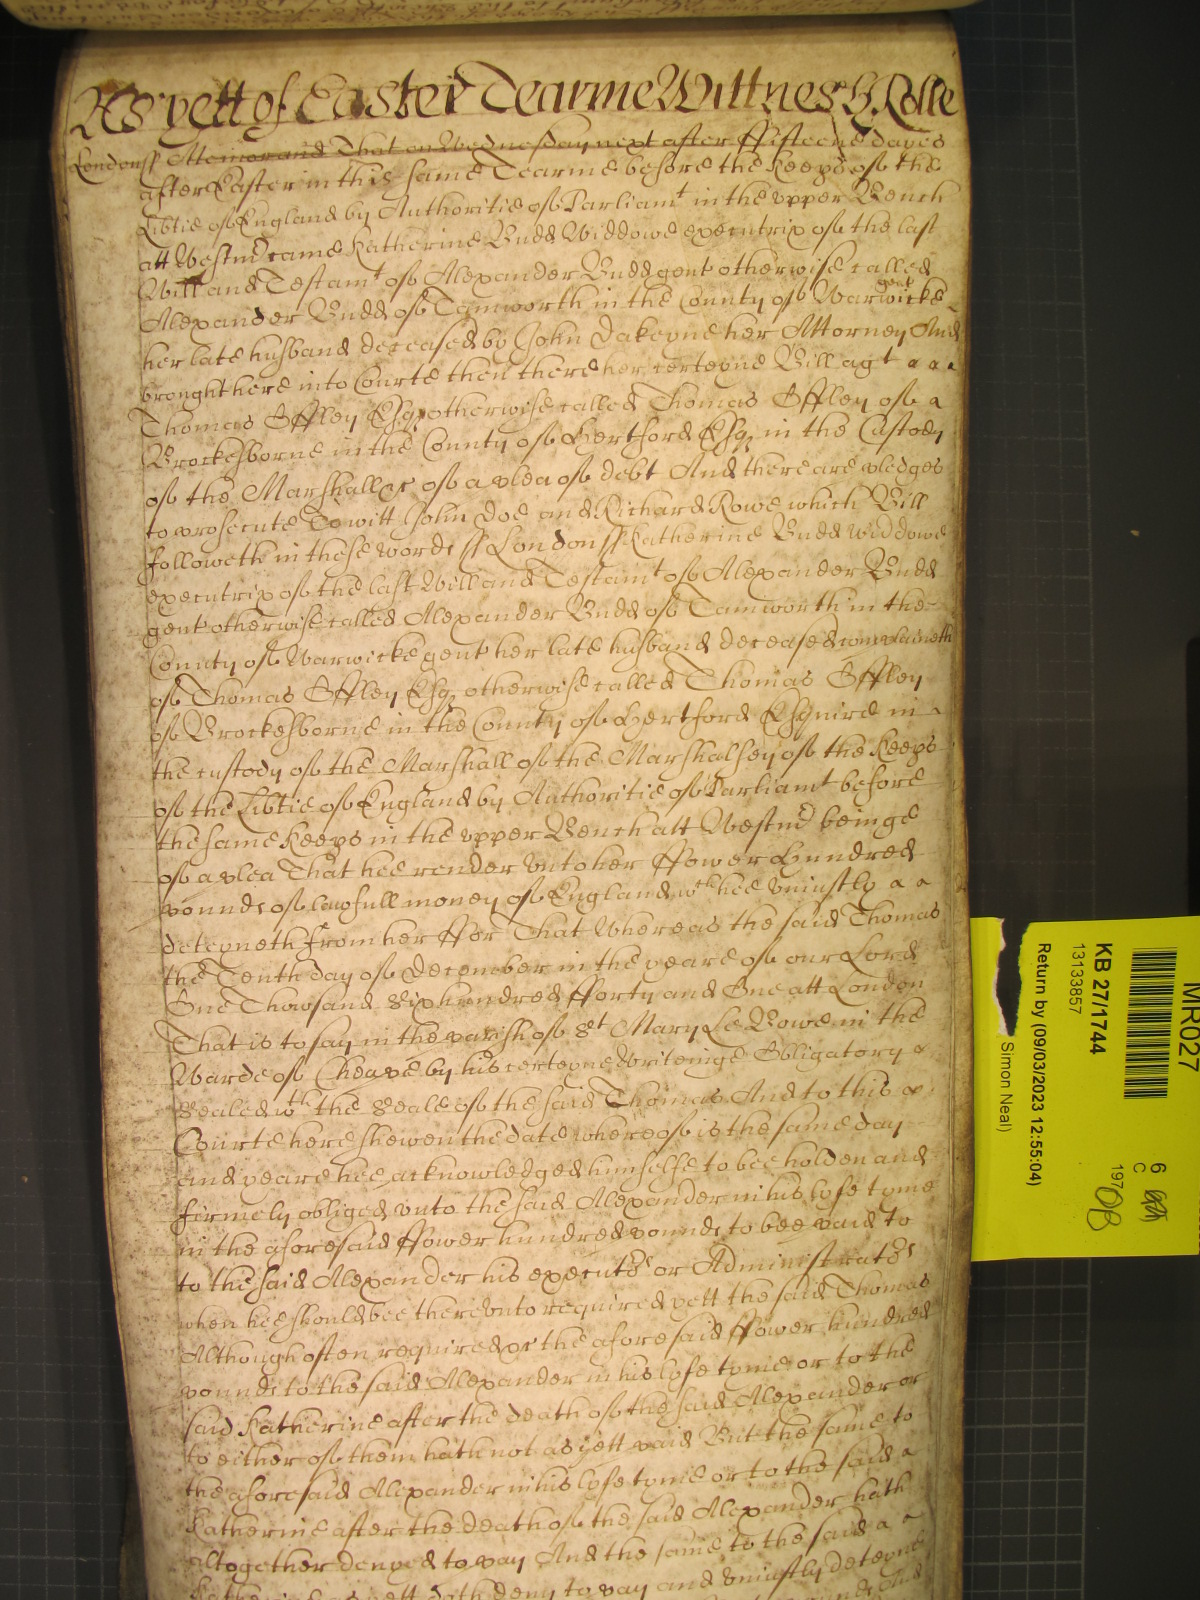 As yett of Easter Tearme Wittnes H. Rolle
London ss Memorand That on Wednesday next after ffifteene dayes
after Easter in this same Tearme before the Keeps of the
Libtie of England by Authoritie of Parliamt in the vpper Bench
att Westm came Katherine Budd Widdowe executrix of the last
Will and Testamt of Alexander Budd gent otherwise called
Alexander Budd of Tamworth in the County of Warwicke gent
her late husband deceased by John Dakeyne her Attorney And
brought here into Courte then there her certeyne Bill agt
Thomas Offley Esq otherwise called Thomas Offley of
Brockesborne in the County of Hertford Esq in the Castody
of the Marshall &c of a plea of debt And there are pledges
to prosecute To witt John Doe and Richard Rowe which Bill
followeth in these words ss London ss Katherine Budd widdowe
executrix of the last Will and Testamt of Alexander Budd
gent otherwise called Alexander Budd of Tamworth in the
County of Warwicke gent her late husband deceased complaineth
of Thomas Offley Esq otherwise called Thomas Offley
of Brockesborne in the County of Hertford Esquire in
the custody of the Marshall of the Marshalsey of the Keeps
of the Libtie of England by Authoritie of Parliamt before
the same Keeps in the vpper Bench att Westm beinge
of a plea That hee render vnto her ffower Hundred
pounds of lawfull money of England wch hee vniustly
deteyneth from her ffor That Whereas the said Thomas
the Tenth day of December in the yeare of our Lord
One Thowsand Six hundred fforty and One att London
That is to say in the parish of St Mary Le Bowe in the
Warde of Cheape by his certeyne Writeinge Obligatory
Sealed wth the Seale of the said Thomas And to this
Courte here shewen the date whereof is the same day
and yeare hee acknowledged himselfe to bee holden and
firmely obliged vnto the said Alexander in his lyfe tyme
in the aforesaid ffower hundred pounds to bee paid to
to the said Alexander his executors or Administrators
when hee should bee therevnto required yett the said Thomas
Although often required &c the aforesaid ffower hundred
pounds to the said Alexander in his lyfe tyme or to the
said Katherine after the death of the said Alexander or
to either of them hath not as yett paid But the same to
the aforesaid Alexander in his lyfe tyme or to the said
Katherine after the death of the said Alexander hath
altogether denyed to pay And the same to the said
Katherine as yett doth deny to pay and vniustly deteyne
MR027
KB 27/1744
13133857
Return by (09/03/2023 12:55:04)
Simon Neal)
6
C
197